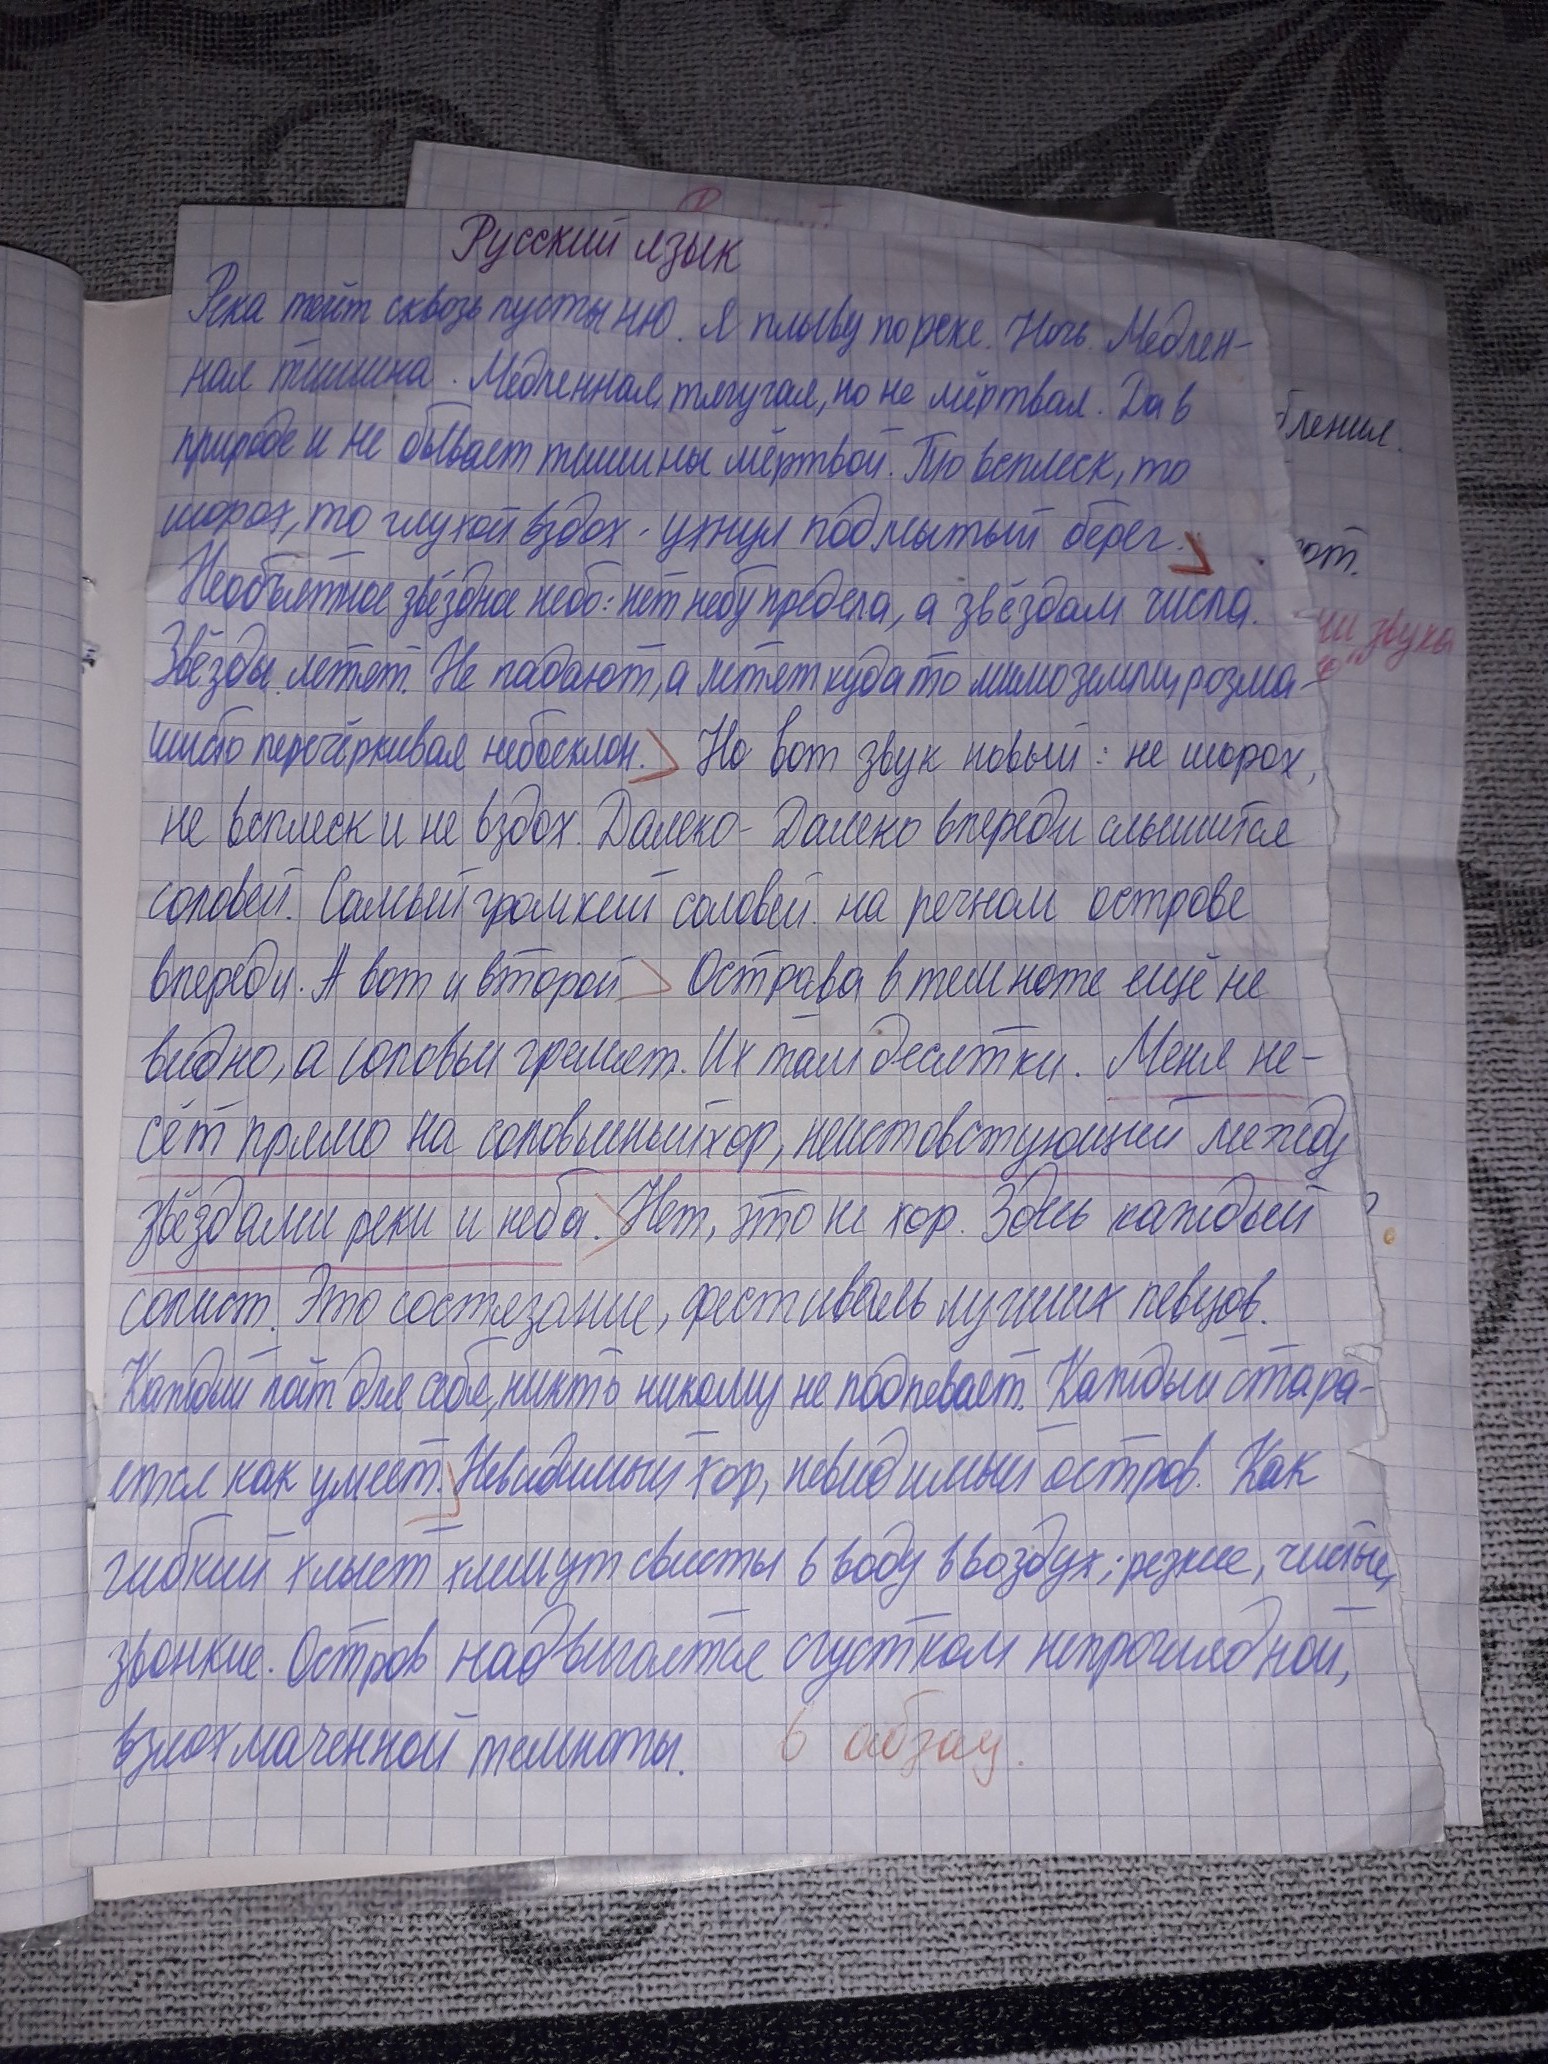 Русский язык
Река течёт сквозь пустыню. Я плыву по реке. Ночь. Медлен-
ная тишина. Медленная, тягучая, но не мёртвая. Да в
природе и не бывает тишины мёртвой. То всплеск, то
шорох, то глухой вздох - ухнул подмытый берег.
Необъятное звёздное небо: нет небу предела, а звёздам числа.
Звёзды летят. Не падают, а летят куда то мимо земли, розма-
шисто перечёркивая небосклон. Но вот звук новый: не шорох,
не всплеск и не вздох. Далеко-Далеко впереди слышится
соловей. Самый громкий соловей на речном острове
впереди. А вот и второй Острова в темноте ещё не
видно, а соловьи гремят. Их там десятки. Меня не-
сёт прямо на соловьиный хор, неистовствующий между
звёздами реки и неба. Нет, это не хор. Здесь каждый
солист. Это состязание, фестиваль лучших певцов.
Каждый поёт для себя, никто никому не подпевает. Каждый стара-
ется как умеет. Невидимый хор, невидимый остров. Как
гибкий хлыст хлещут свисты в воду в воздух; резкие, чистые,
звонкие. Остров надвигается сгустком непроглядной,
взлохмаченной темноты.
6 абзац.
бления.
от.
ии звуки